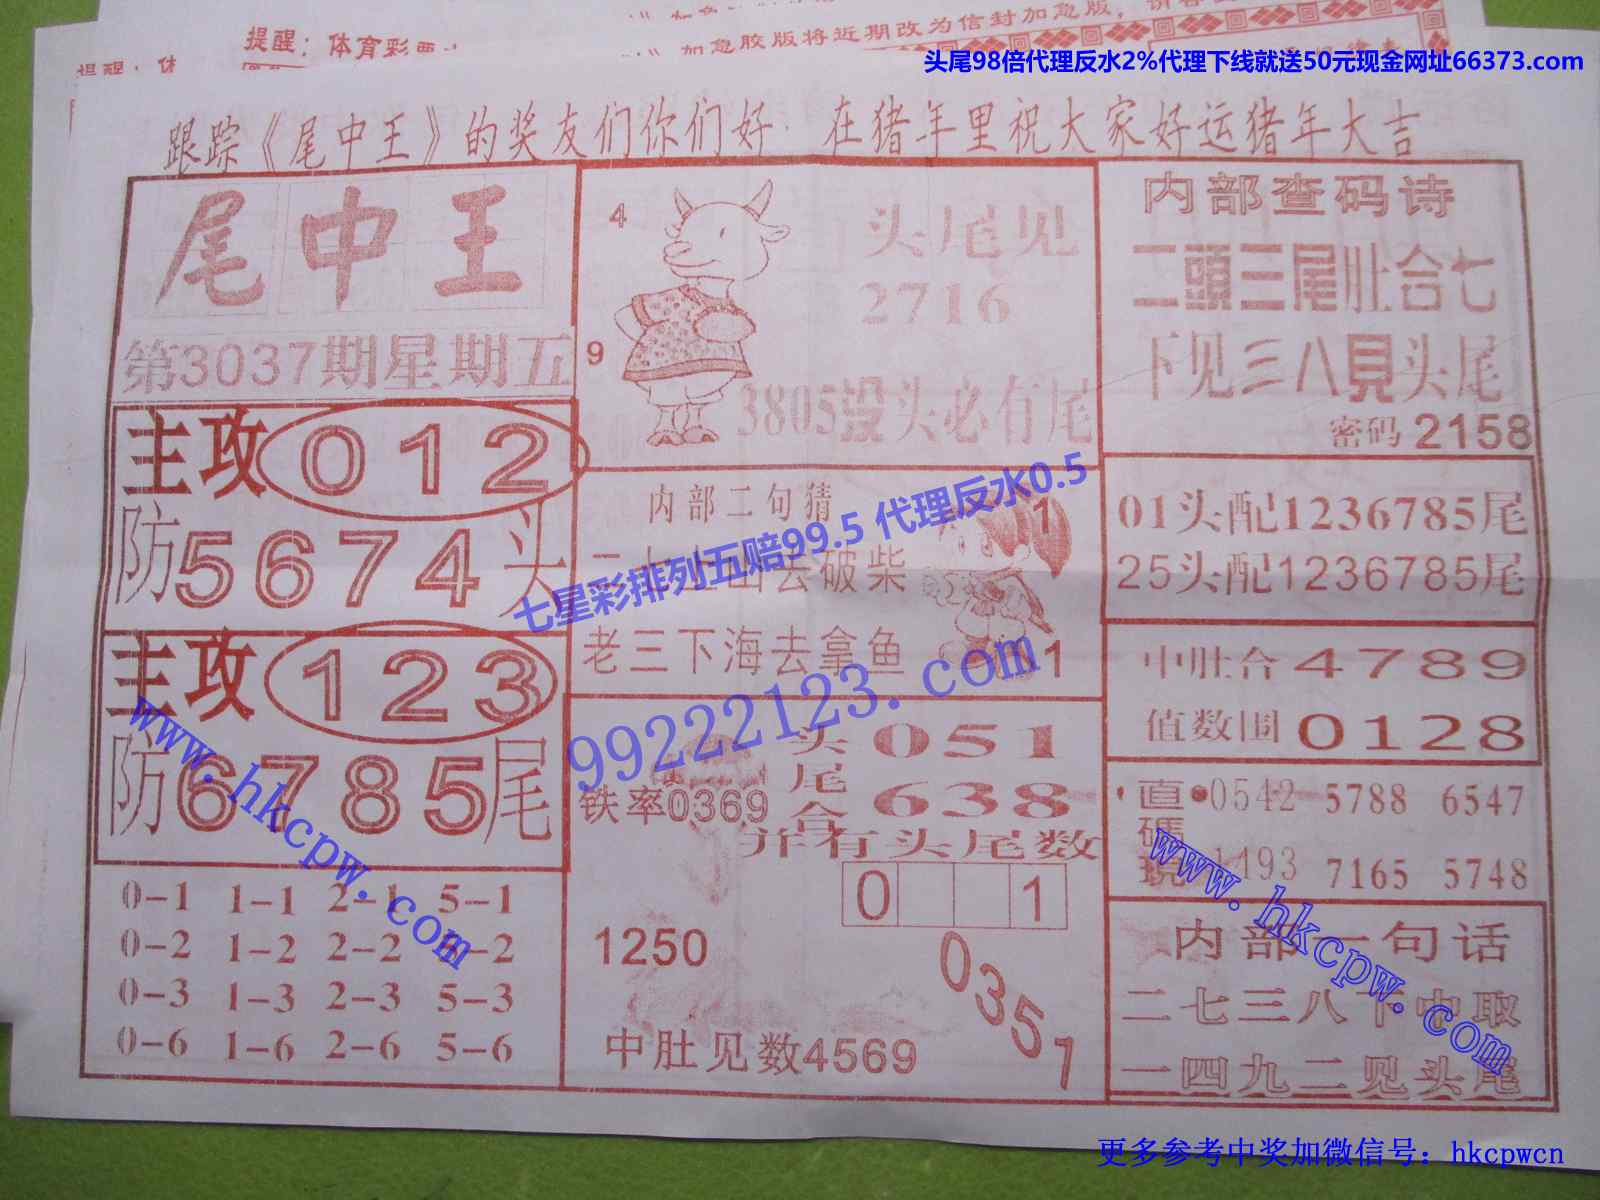 提醒：体育彩票
加急胶版将近期改为信封加急版，
头尾98倍代理反水2%代理下线就送50元现金网址66373.com
跟踪《尾中王》的奖友们你们好 在猪年里祝大家好运猪年大吉
尾中王
第3037期星期五
主攻 012
防5674头
主攻 123
防6785尾
0-1 1-1 2-1 5-1
0-2 1-2 2-2 5-2
0-3 1-3 2-3 5-3
0-6 1-6 2-6 5-6
4
9
头尾见
2716
3805没头必有尾
内部二句猜
去破柴
老三下海去拿鱼
1
1
头 051
尾
合 638
铁率0369
并有头尾数
0 1
1250
0351
中肚见数4569
内部查码诗
二頭三尾肚合七
下见三八見头尾
密码 2158
01头配1236785尾
25头配1236785尾
中肚合 4789
值数围 0128
直碼現
0542 5788 6547
1493 7165 5748
内部一句话
二七三八下中取
一四九二见头尾
七星彩排列五赔99.5 代理反水0.5
99222123.com
www.hkcpw.com
www.hkcpw.com
更多参考中奖加微信号：hkcpwcn